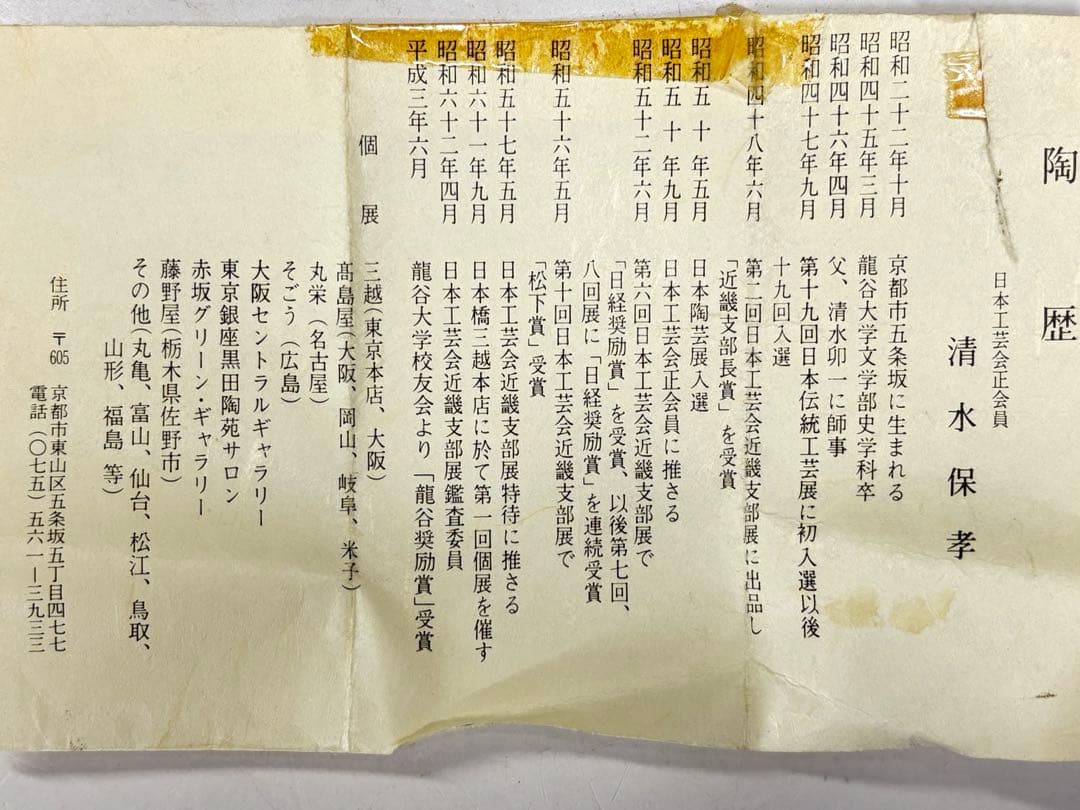 陶歴
日本工芸会正会員
清水保孝
昭和二十二年十月 京都市五条坂に生まれる
昭和四十五年三月 龍谷大学文学部史学科卒
昭和四十六年四月 父、清水卯一に師事
昭和四十七年九月 第十九回日本伝統工芸展に初入選以後
十九回入選
昭和四十八年六月 第二回日本工芸会近畿支部展に出品し
「近畿支部長賞」を受賞
昭和五十年五月 日本陶芸展入選
昭和五十年九月 日本工芸会正会員に推さる
昭和五十二年六月 第六回日本工芸会近畿支部展で
「日経奨励賞」を受賞、以後第七回、
八回展に「日経奨励賞」を連続受賞
昭和五十六年五月 第十回日本工芸会近畿支部展で
「松下賞」受賞
昭和五十七年五月 日本工芸会近畿支部展特待に推さる
昭和六十一年九月 日本橋三越本店に於て第一回個展を催す
昭和六十二年四月 日本工芸会近畿支部展鑑査委員
平成三年六月 龍谷大学校友会より「龍谷奨励賞」受賞
個展 三越(東京本店、大阪)
髙島屋(大阪、岡山、岐阜、米子)
丸栄(名古屋)
そごう(広島)
大阪セントラルギャラリー
東京銀座黒田陶苑サロン
赤坂グリーン・ギャラリー
藤野屋(栃木県佐野市)
その他(丸亀、富山、仙台、松江、鳥取、
山形、福島 等)
住所 〒605 京都市東山区五条坂五丁目四七七
電話(〇七五)五六一ー三九三三